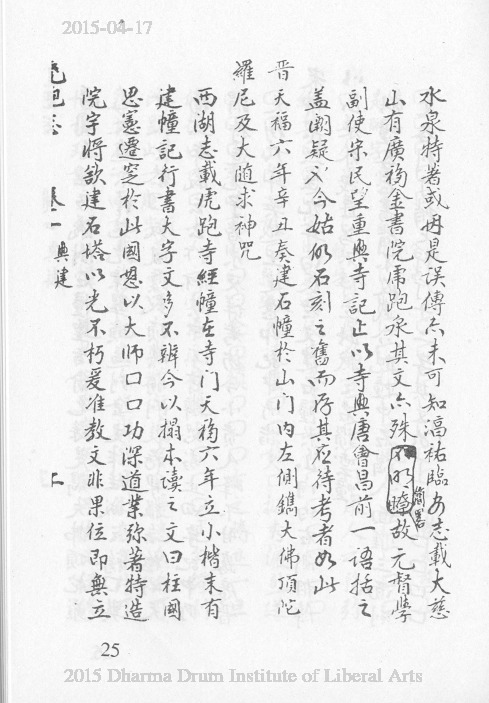 2015-04-17
水泉特著或毋是誤傳亦未可知淳祐臨安志載大慈
山有廣福金書院虎跑泉其文亦殊不明瞭故元督學
簡畧
副使宋民望重興寺記止以寺興唐會昌前一語括之
盖闕疑也今姑仍石刻之舊而存其應待考者如此
晋天福六年辛丑奏建石幢於山门内左側鐫大佛頂陀
羅尼及大随求神咒
西湖志載虎跑寺經幢在寺门天福六年立小楷末有
建幢記行書大字文多不辨今以搨本讀之文曰柱國
思憲遷窆於此國恩以大师口口功深道業弥著特造
院宇将欲建石塔以光不朽爰准教文非果位即無立
虎跑志 卷一 興建 上
25
2015 Dharma Drum Institute of Liberal Arts